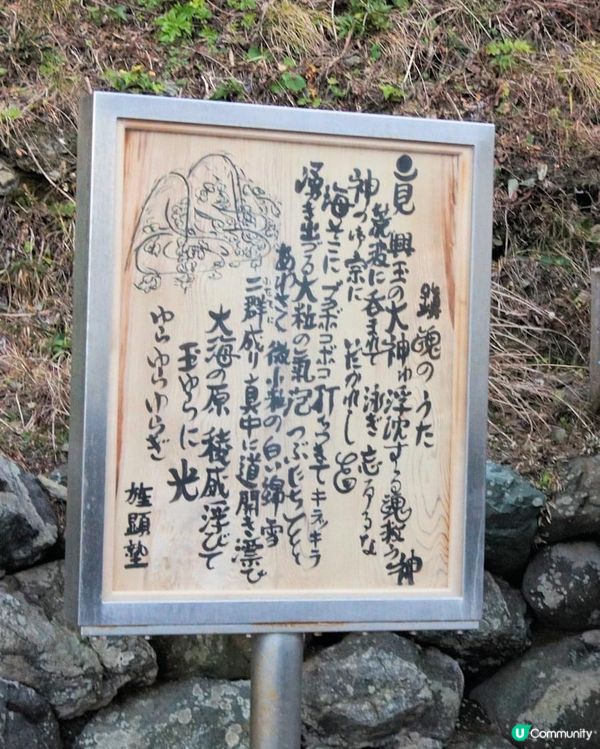 鎮魂のうた
見 興玉の大神ゆ 浮沈する魂救う神
荒波に呑まれて 泳ぎ忘るるな
神のゆ京に いだかれし
海そこに ブクボコボコ 打ちつきて キラキラ
湧き出づる大粒の氣泡 つぶにちしとも
あわさく 微小粒の白い綿雪
二群成り 真中に道開き 漂び
大海の原 稜威浮びて
玉ゆらに 光
ゆらゆらゆらぎ
顕塾
U Community